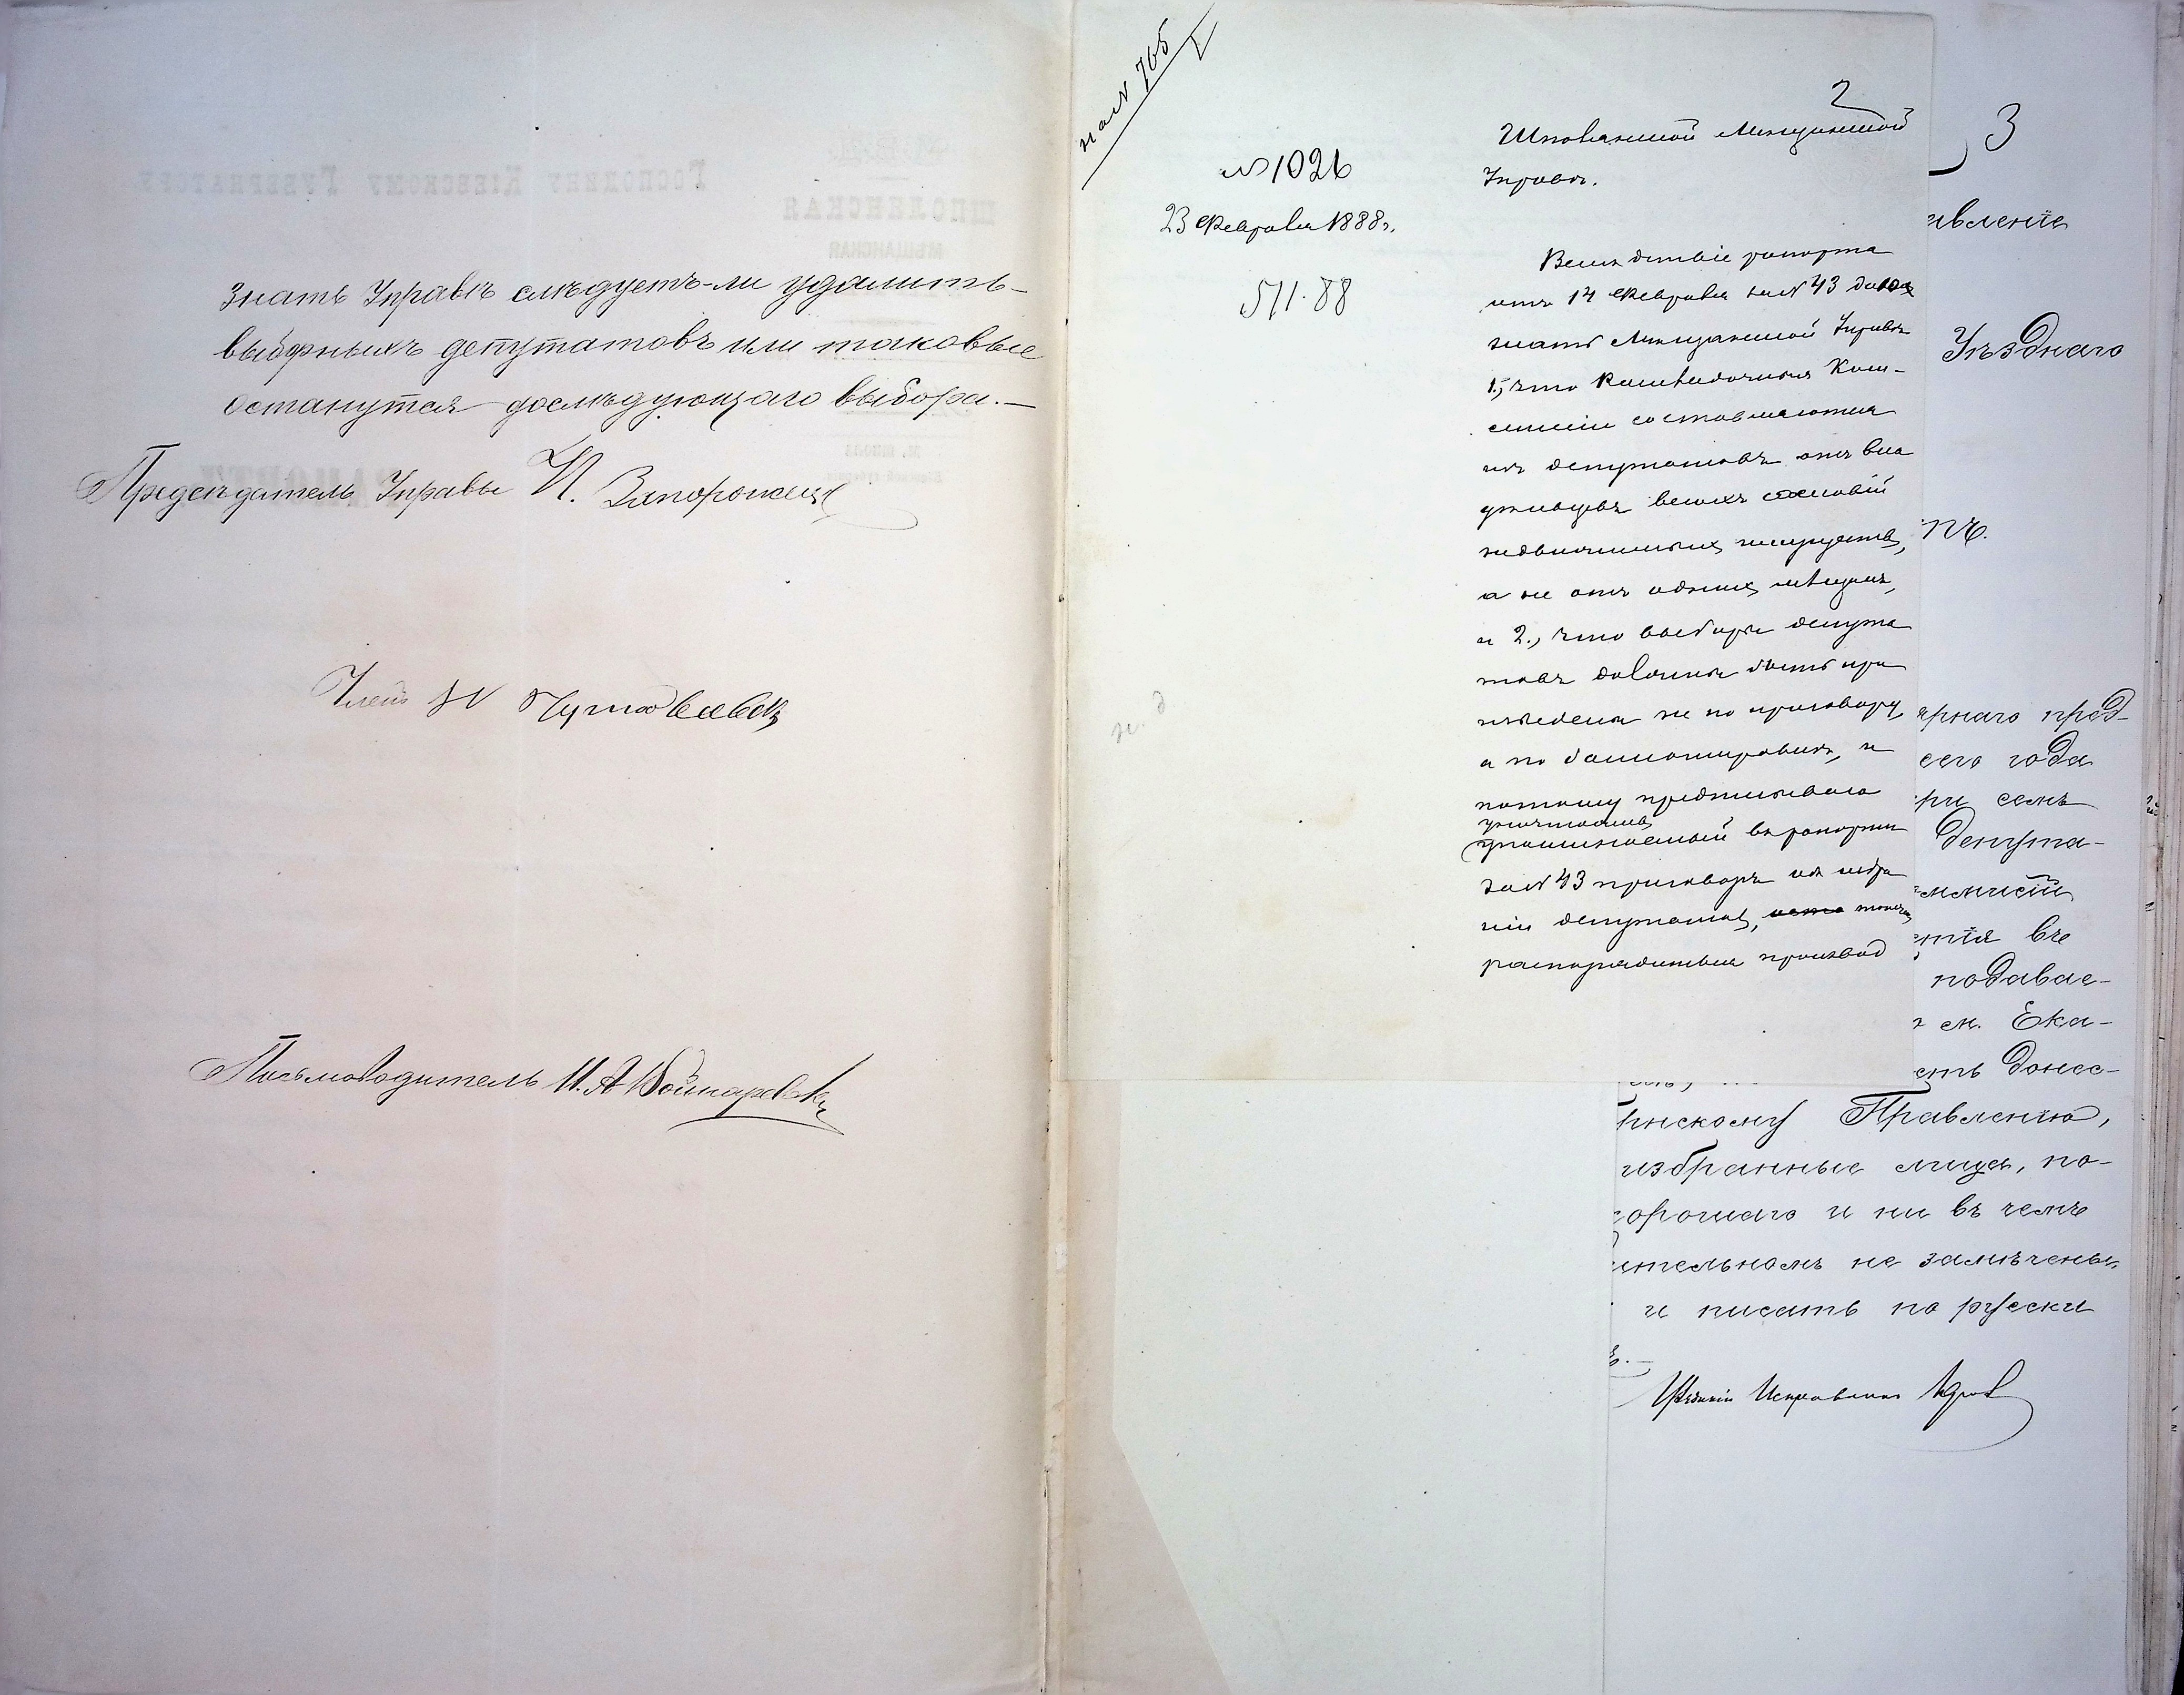 знать Управѣ слѣдуетъ-ли удалить
выборныхъ депутатовъ или таковые
останутся дослѣдующаго выбора.—
Предсѣдатель Управы И. Запорожецъ
Членъ
Письмоводитель И. А.
на № 765
№ 1026
23 Февраля 1888 г.
511. 88
2
Шполянской Мѣщанской
Управѣ.
Вслѣдствіе рапорта
отъ 14 Февраля за № 43 даю
знать Мѣщанской Управѣ
1, что Раскладочныя Ком-
миссіи составляются
изъ депутатовъ отъ вла
дѣльцевъ всѣхъ сословій
недвижимыхъ имуществъ,
а не отъ однихъ мѣщанъ,
и 2., что выборы депута
товъ должны быть про
изведены не по приговору,
а по баллотировкѣ, и
потому предписываю
уничтоживъ
упоминаемый въ рапортѣ
за № 43 приговоръ объ избра
ніи депутатовъ,
распорядиться производ
3
авленіе
Уѣзднаго
арнаго пред-
сего года
ри семъ
депута-
ммисіи
вѣе
подавае-
см. Ека-
сть донес-
инскому Правленію,
избранные лица, по-
хорошаго и ни въ чемъ
ительномъ не замѣчены
и писать по русски
Уѣздный Исправникъ